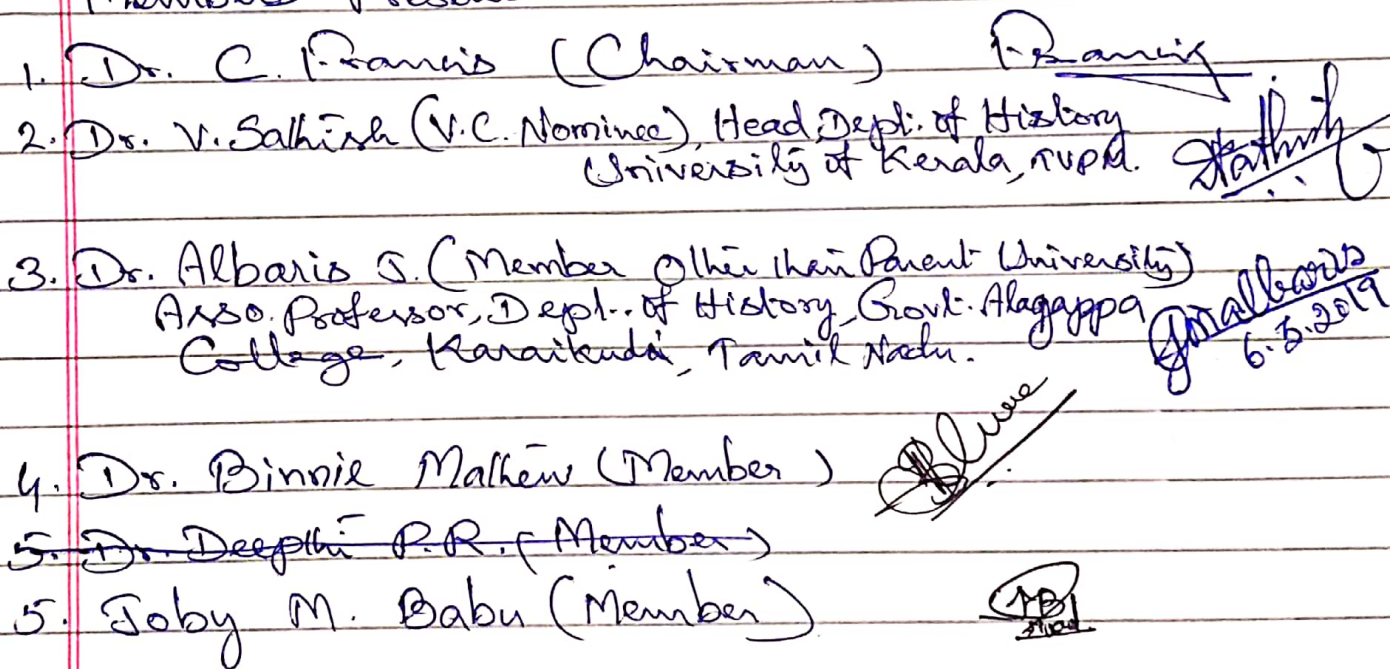 Members Present
1. Dr. C. Francis (Chairman) Francis
2. Dr. V. Sathish (V.C. Nominee), Head, Dept. of History
University of Kerala, TVPM. Sathish
3. Dr. Albaris S. (Member Other than Parent University)
Asso. Professor, Dept.. of History, Govt. Alagappa
College, Karaikudi, Tamil Nadu.
6.5.2019
4. Dr. Binnie Mathew (Member)
5. Dr. Deepthi P.R. (Member)
5. Joby M. Babu (Member)